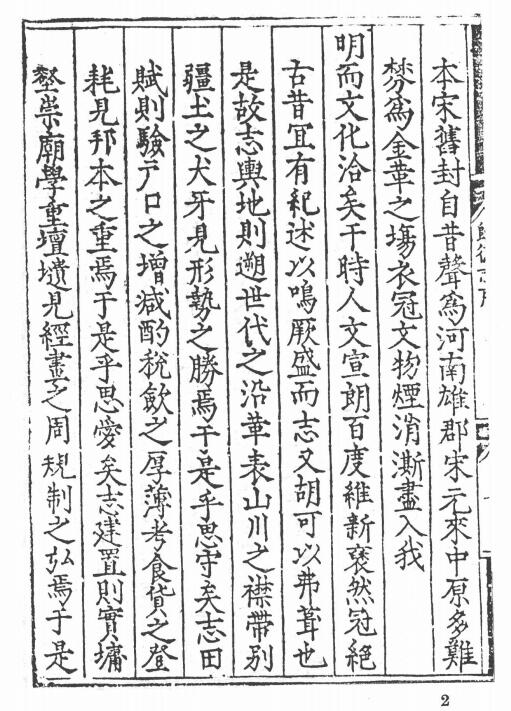 本宋舊封自昔聲爲河南雄郡宋元來中原多難
棼爲金革之塲衣冠文物煙消澌盡入我
明而文化洽矣于時人文宣朗百度維新褎然冠絕
古昔冝有紀述以鳴厥盛而志又胡可以弗葺也
是故志輿地則遡世代之沿革表山川之襟帶別
疆土之犬牙見形勢之勝焉于是乎思守矣志田
賦則驗戶口之增減酌稅歛之厚薄考食貨之登
耗見邦本之重焉于是乎思愛矣志建置則實墉
壑崇廟學重壇壝見經畫之周規制之弘焉于是
2